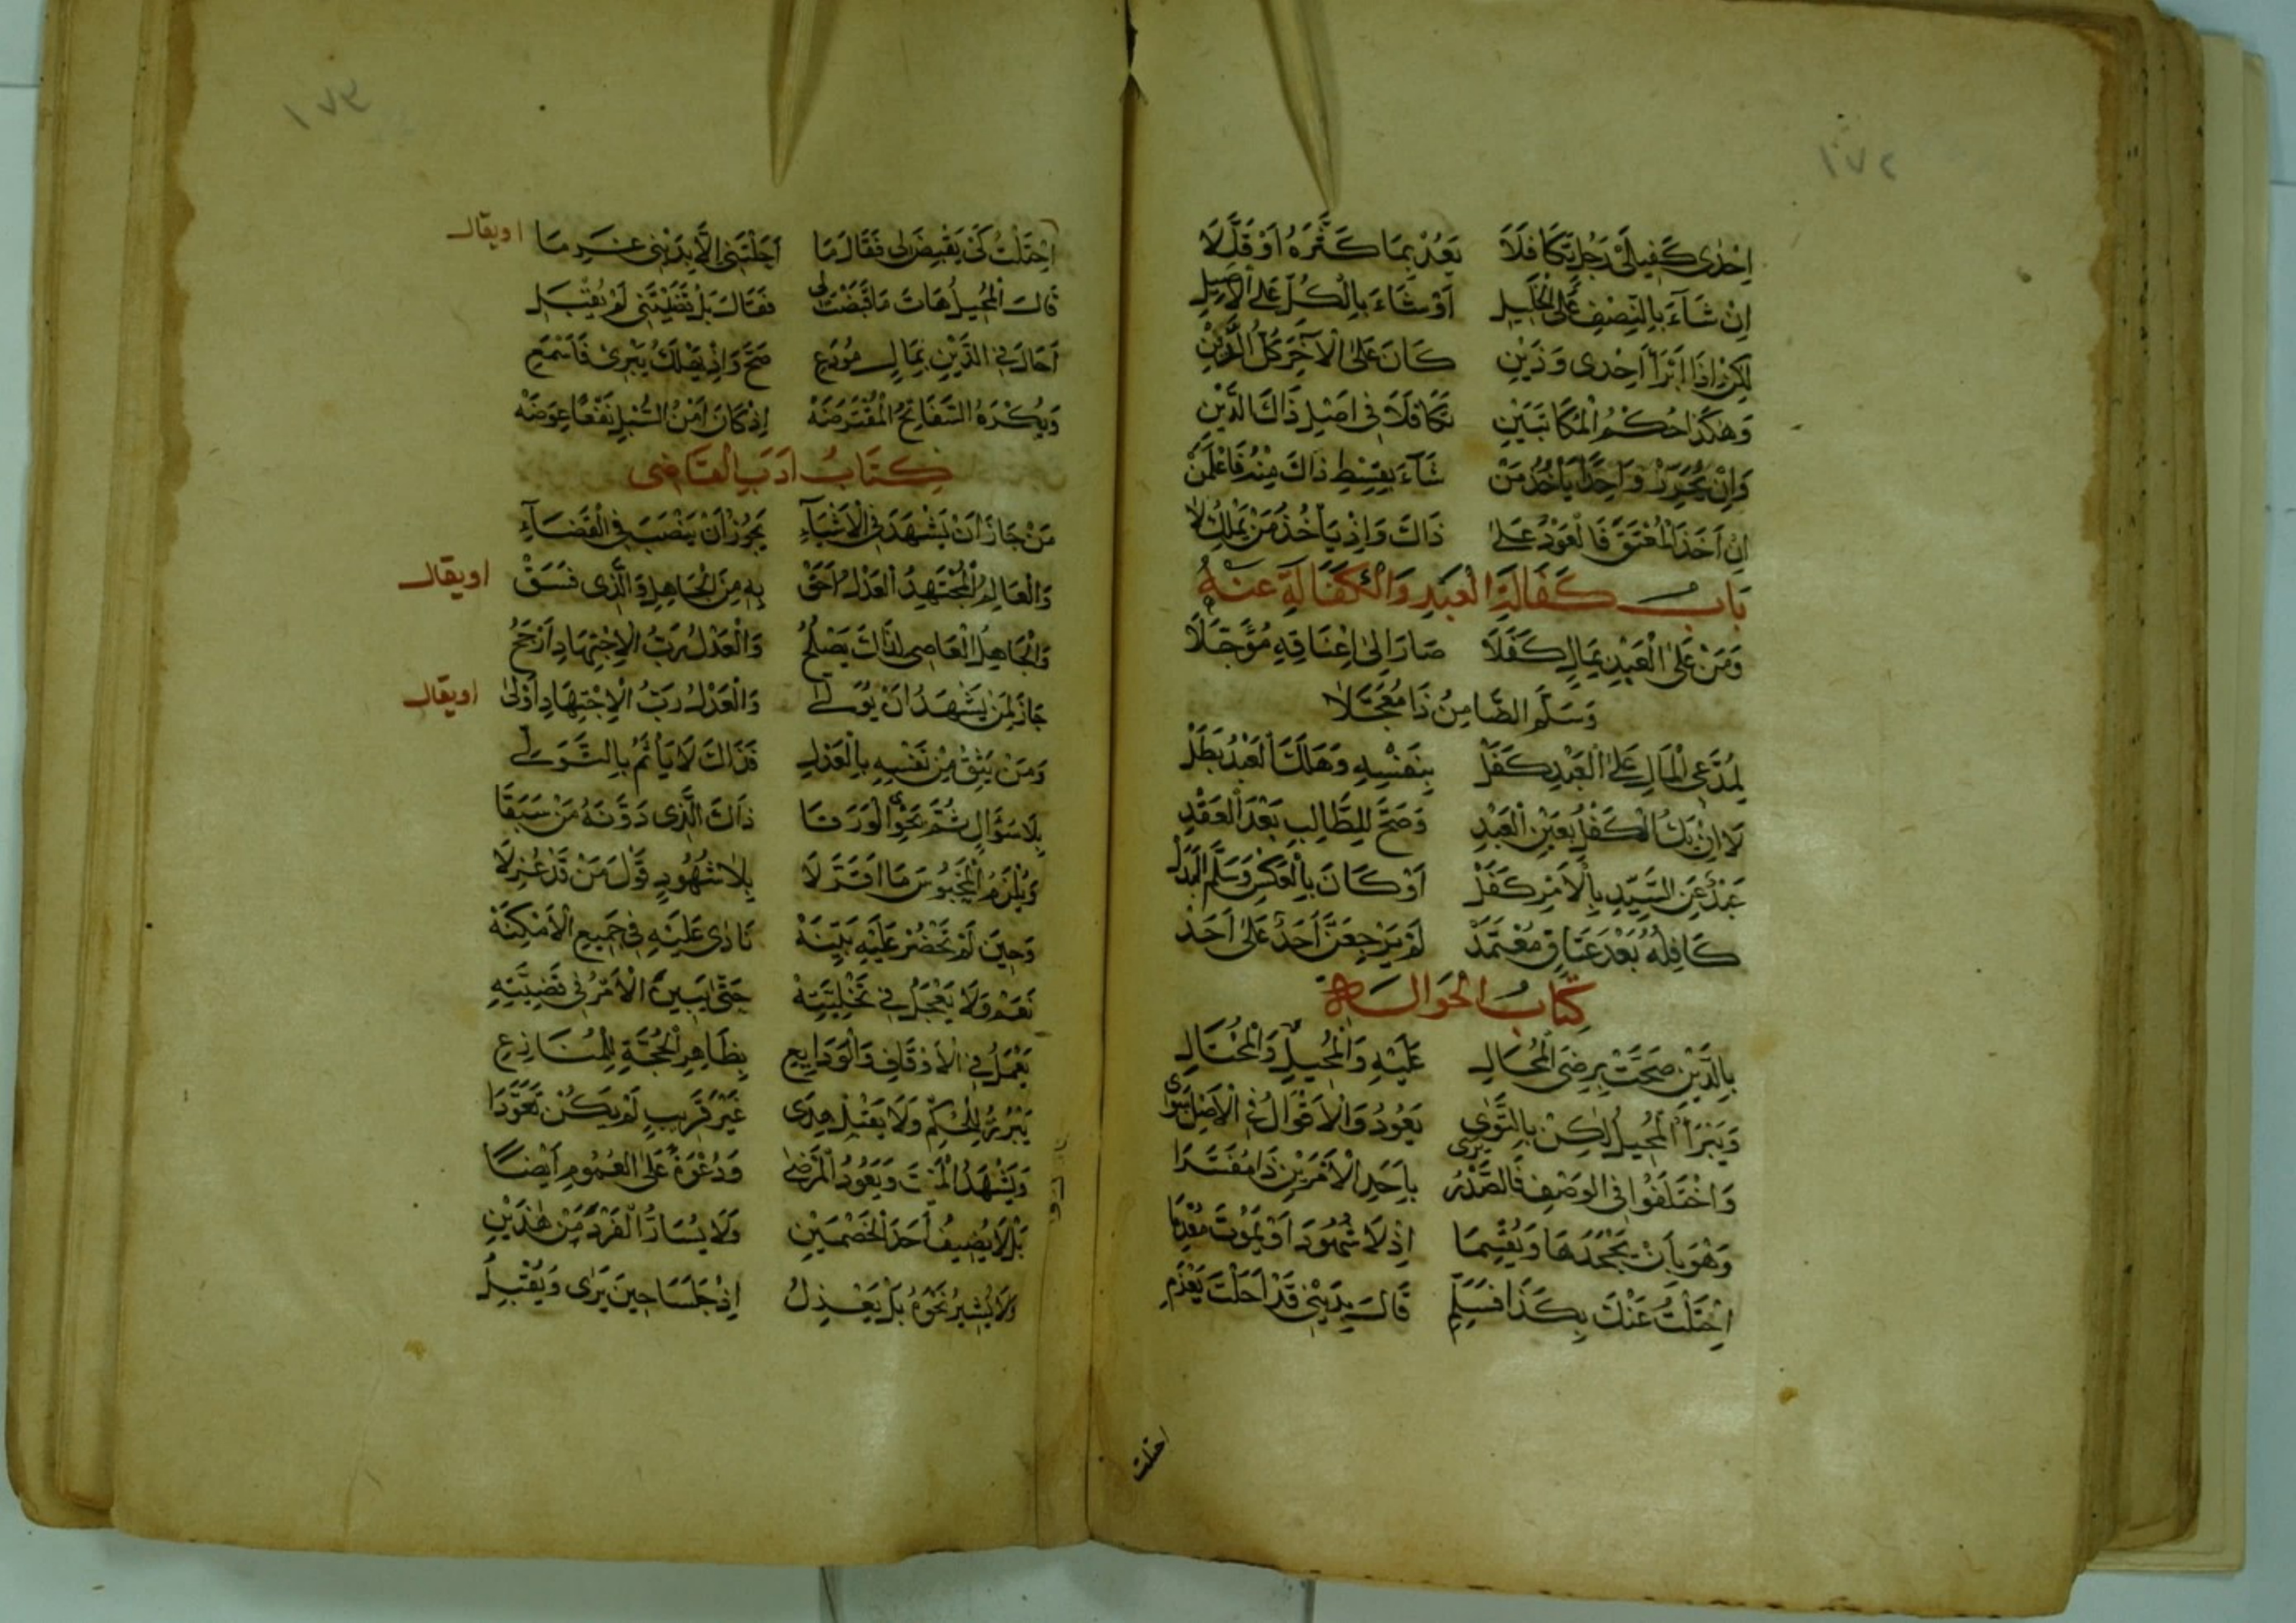 ١٧٢
إحدى كفيلي رجل تكافلا يعد بما كثره أو قللا
إن شاء بالنصف على الخليل أو شاء بالكل على الأصيل
لكن إذا أبرأ إحدى وذين كان على الآخر كل الدين
وهكذا حكم المكاتبين تكافلا في أصل ذاك الدين
وإن يحرر واحدا يأخذ من شاء بقسط ذاك منه فاعلمن
إن أخذ المعتق فالعود على ذاك وإذ يأخذ من يملك لا
باب كفالة العبد والكفالة عنه
ومن على العبد بمال كفلا صار إلى إعتاقه مؤجلا
وسلم الضامن ذا معجلا
لمدعي المال على العبد كفل بنفسه وهلك العبد بطل
لا إن يك الكفل بعين العبد وصح للطالب بعد العقد
عبد عن السيد بالأمر كفل أو كان بالعكس وسلم البدل
كافله بعد عتاق معتمد لم يرجعن أحد على أحد
كتاب الحوالة
بالدين صحت برضى المحال عليه والمحيل والمحتال
ويبرأ المحيل لكن بالتوى يعود والأقوال في الأصل سوى
واختلفوا في الوصف فالصدر يرى بأحد الأمرين ذا مفسرا
وهو بأن يجحدها ويقسما إذ لا شهود أو يموت معدما
احتلت عنك بكذا فسلم قال بديني قد أحلت يغرم
احتلت
١٧٣
احتلت كي يقبض لي فقال ما أحلتني إلا بديني غرما
اويقال
قال المحيل هات ما قبضت لي فقال بل قضيتني لم يقبل
أحال في الدين بمال مودع صح وإذ يهلك يبرى فاسمع
ويكره السفاتج المقترضه إذ كان أمن السبل نفعا عوضه
كتاب أدب القاضي
من جاز أن يشهد في الأشياء يجوز أن ينصب في القضاء
والعالم المجتهد العدل أحق به من الجاهل والذي فسق
اويقال
والجاهل العاصي لذاك يصلح والعدل رب الاجتهاد أرجح
جاز لمن يشهد أن يولى والعدل رب الاجتهاد أولى
اويقال
ومن يثق من نفسه بالعدل فذاك لا يأثم بالتولي
بلا سؤال ثم نحو الورقا ذاك الذي دونه من سبقا
ويلزم المحبوس ما أقر لا بلا شهود قول من قد عزلا
وحين لم تحضر عليه بينه نادى عليه في جميع الأمكنه
نعم ولا يعجل في تخليته حتى يبين الأمر في قضيته
يعمل في الأوقاف والودايع بظاهر الحجة للمنازع
يبرز للحكم ولا يقبل هدى غير قريب لم يكن تعودا
ويشهد الميت ويعود المرضى ودعوة على العموم أيضا
بل لا يضيف أحد الخصمين ولا يسار الفرد من هذين
ولا يشير نحوه بل يعدل إذ جلسا حين يرى ويقبل